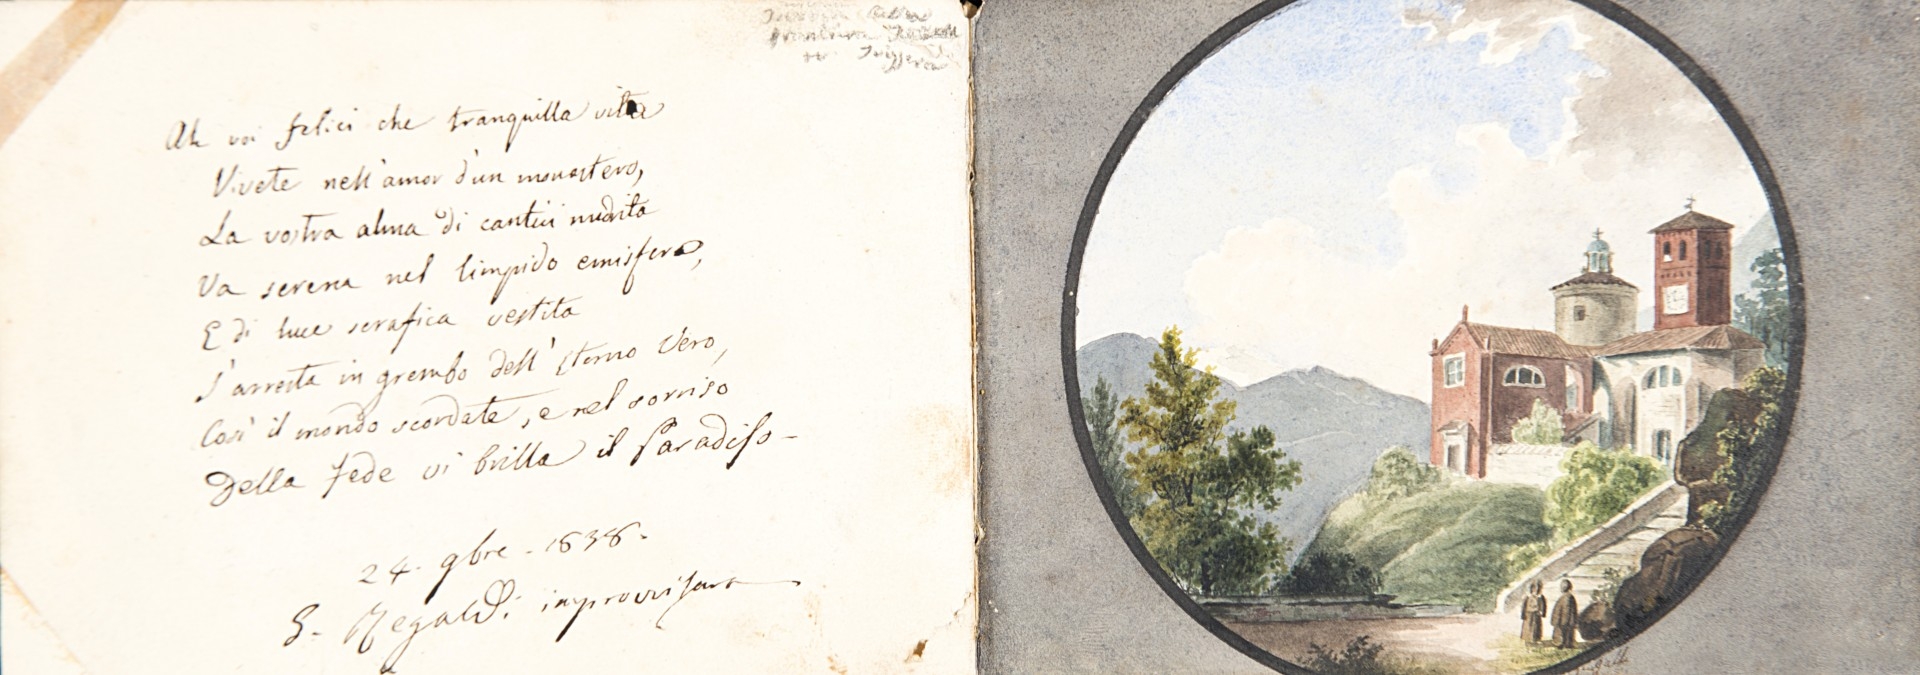 Ah voi felici che tranquilla vita
Vivete nell'amor d'un monastero,
La vostra alma di cantici nudrita
Va serena nel limpido emisfero,
E di luce serafica vestita
S'arresta in grembo dell'Eterno Vero,
Così il mondo scordate, e nel sorriso
Della fede vi brilla il Paradiso -
24. 9bre - 1838.
G. Regaldi improvvisava